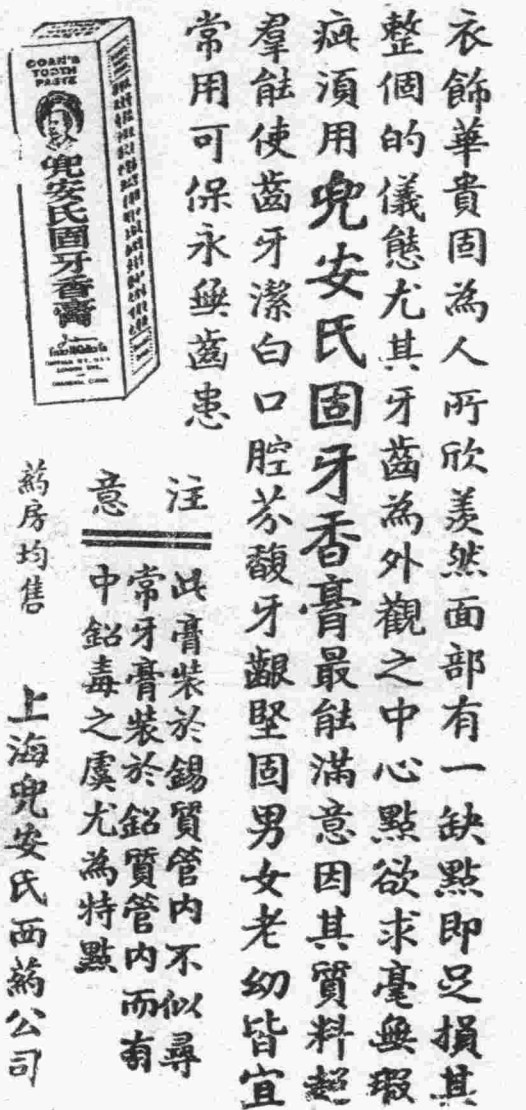 衣飾華貴固為人所欣羨然面部有一缺點即足損其
整個的儀態尤其牙齒為外觀之中心點欲求毫無瑕
疵須用兜安氏固牙香膏最能滿意因其質料超
羣能使齒牙潔白口腔芬馥牙齦堅固男女老幼皆宜
常用可保永無齒患
DOAN'S
TOOTH
PASTE
兜安氏固牙香膏
注意
此膏裝於錫質管內不似尋
常牙膏裝於鉛質管內而有
中鉛毒之虞尤為特點
藥房均售
上海兜安氏西藥公司